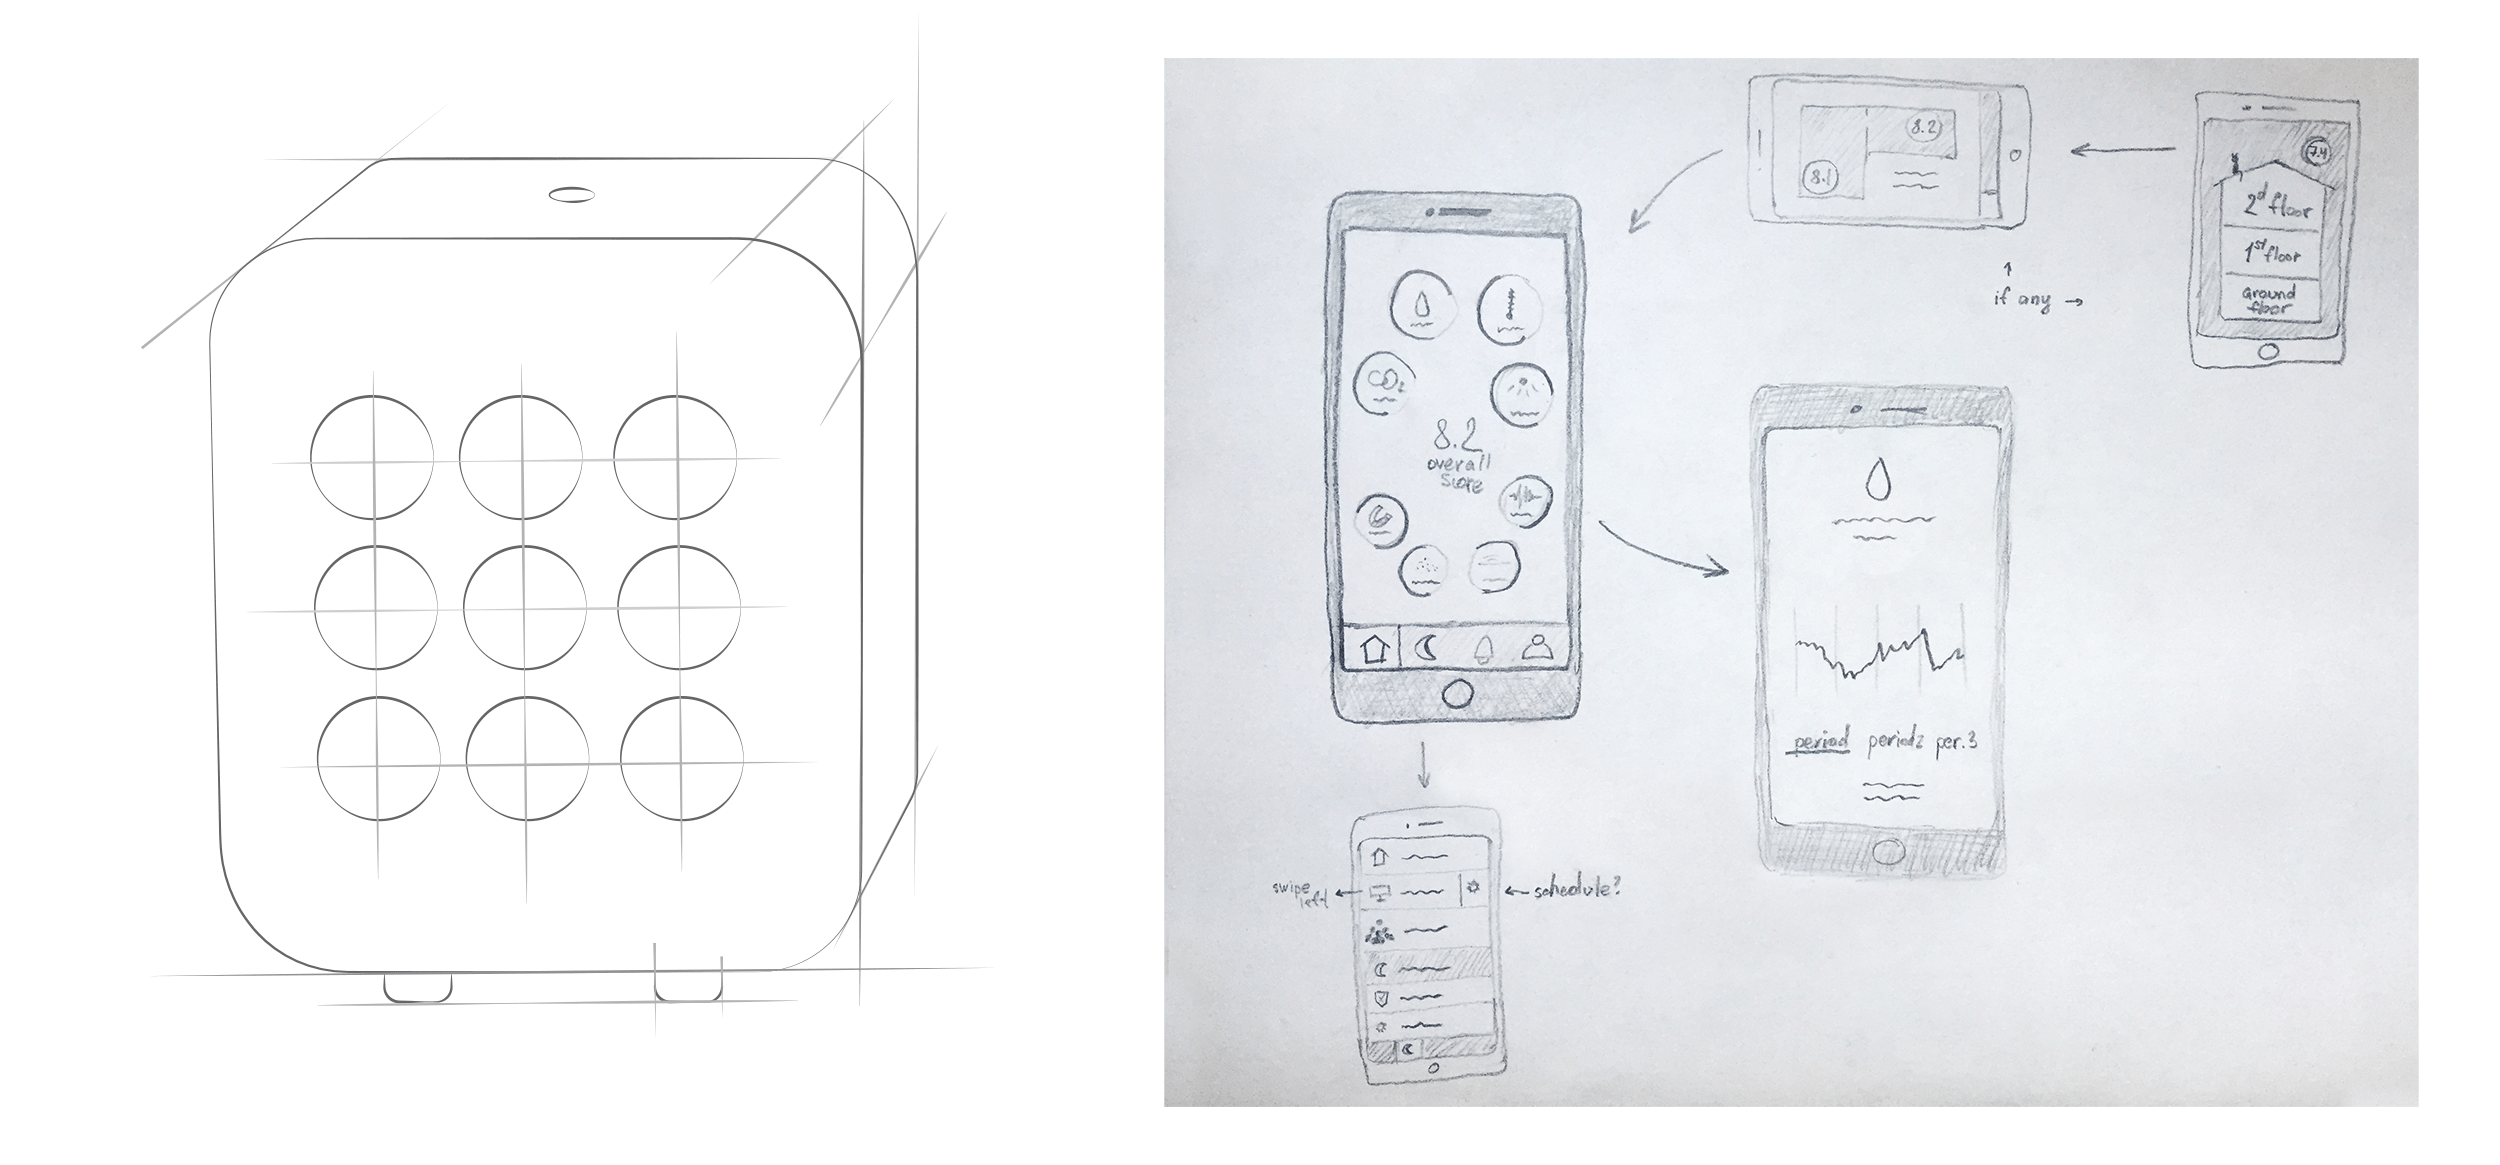 8.2
8.1
7.4
2d floor
1st floor
Ground
floor
↑
if any →
CO2
8.2
overall
Score
period period2 per.3
swipe
left
schedule?